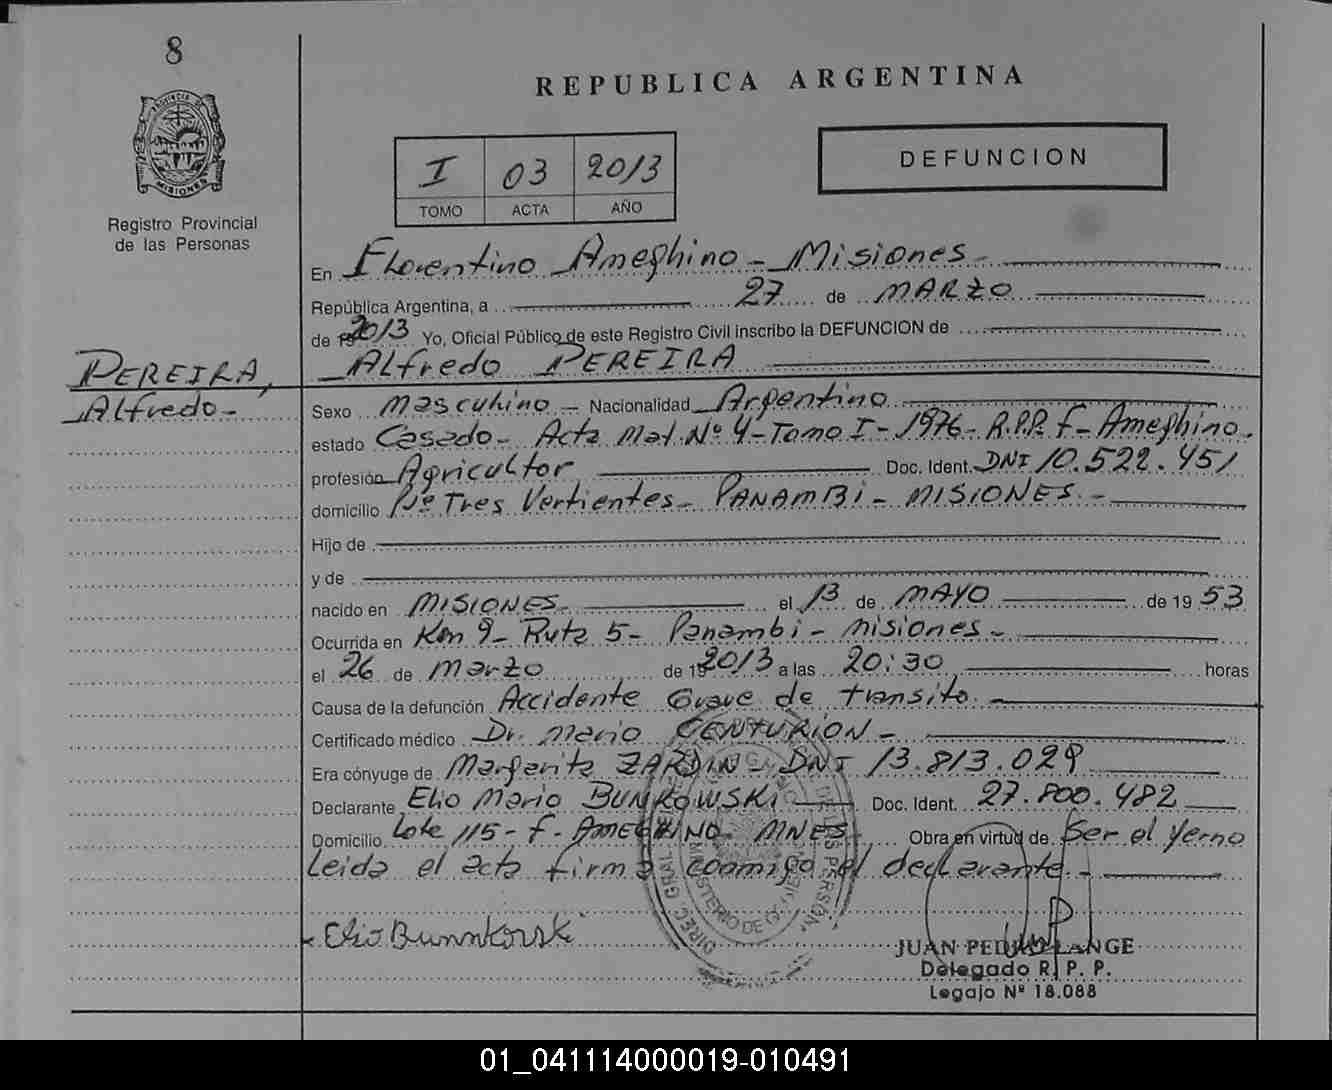 8
REPUBLICA ARGENTINA
PROVINCIA DE
MISIONES
Registro Provincial
de las Personas
I 03 2013
TOMO ACTA AÑO
DEFUNCION
En Florentino Ameghino - Misiones -
República Argentina, a 27 de MARZO
de 2013 Yo, Oficial Público de este Registro Civil inscribo la DEFUNCION de
Alfredo PEREIRA
PEREIRA,
Alfredo -
Sexo Masculino - Nacionalidad Argentino
estado Casado - Acta Mat. Nº 4 - Tomo I - 1976 - R.P.P. F - Ameghino.
profesión Agricultor Doc. Ident. DNI 10.522.451
domicilio Pje Tres Vertientes - PANAMBI - MISIONES -
Hijo de
y de
nacido en MISIONES el 13 de MAYO de 19 53
Ocurrida en Km 9 - Ruta 5 - Panambi - Misiones -
el 26 de Marzo de 2013 a las 20:30 horas
Causa de la defunción Accidente Grave de transito -
Certificado médico Dr. Mario CENTURION -
Era cónyuge de Margarita ZARDIN - DNI 13.813.029
Declarante Elio Mario BUNKOWSKI Doc. Ident. 27.800.482
Domicilio Lote 115 - F. AMEGHINO - MNES - Obra en virtud de Ser el yerno
Leida el acta firma conmigo el declarante -
Elio Bunnkorski
DIREC. GRAL. DE LAS PERSON
MINISTERIO DE GOBIERNO
JUAN PEDRO LANGE
Delegado R. P. P.
Legajo Nº 18.088
01_041114000019-010491